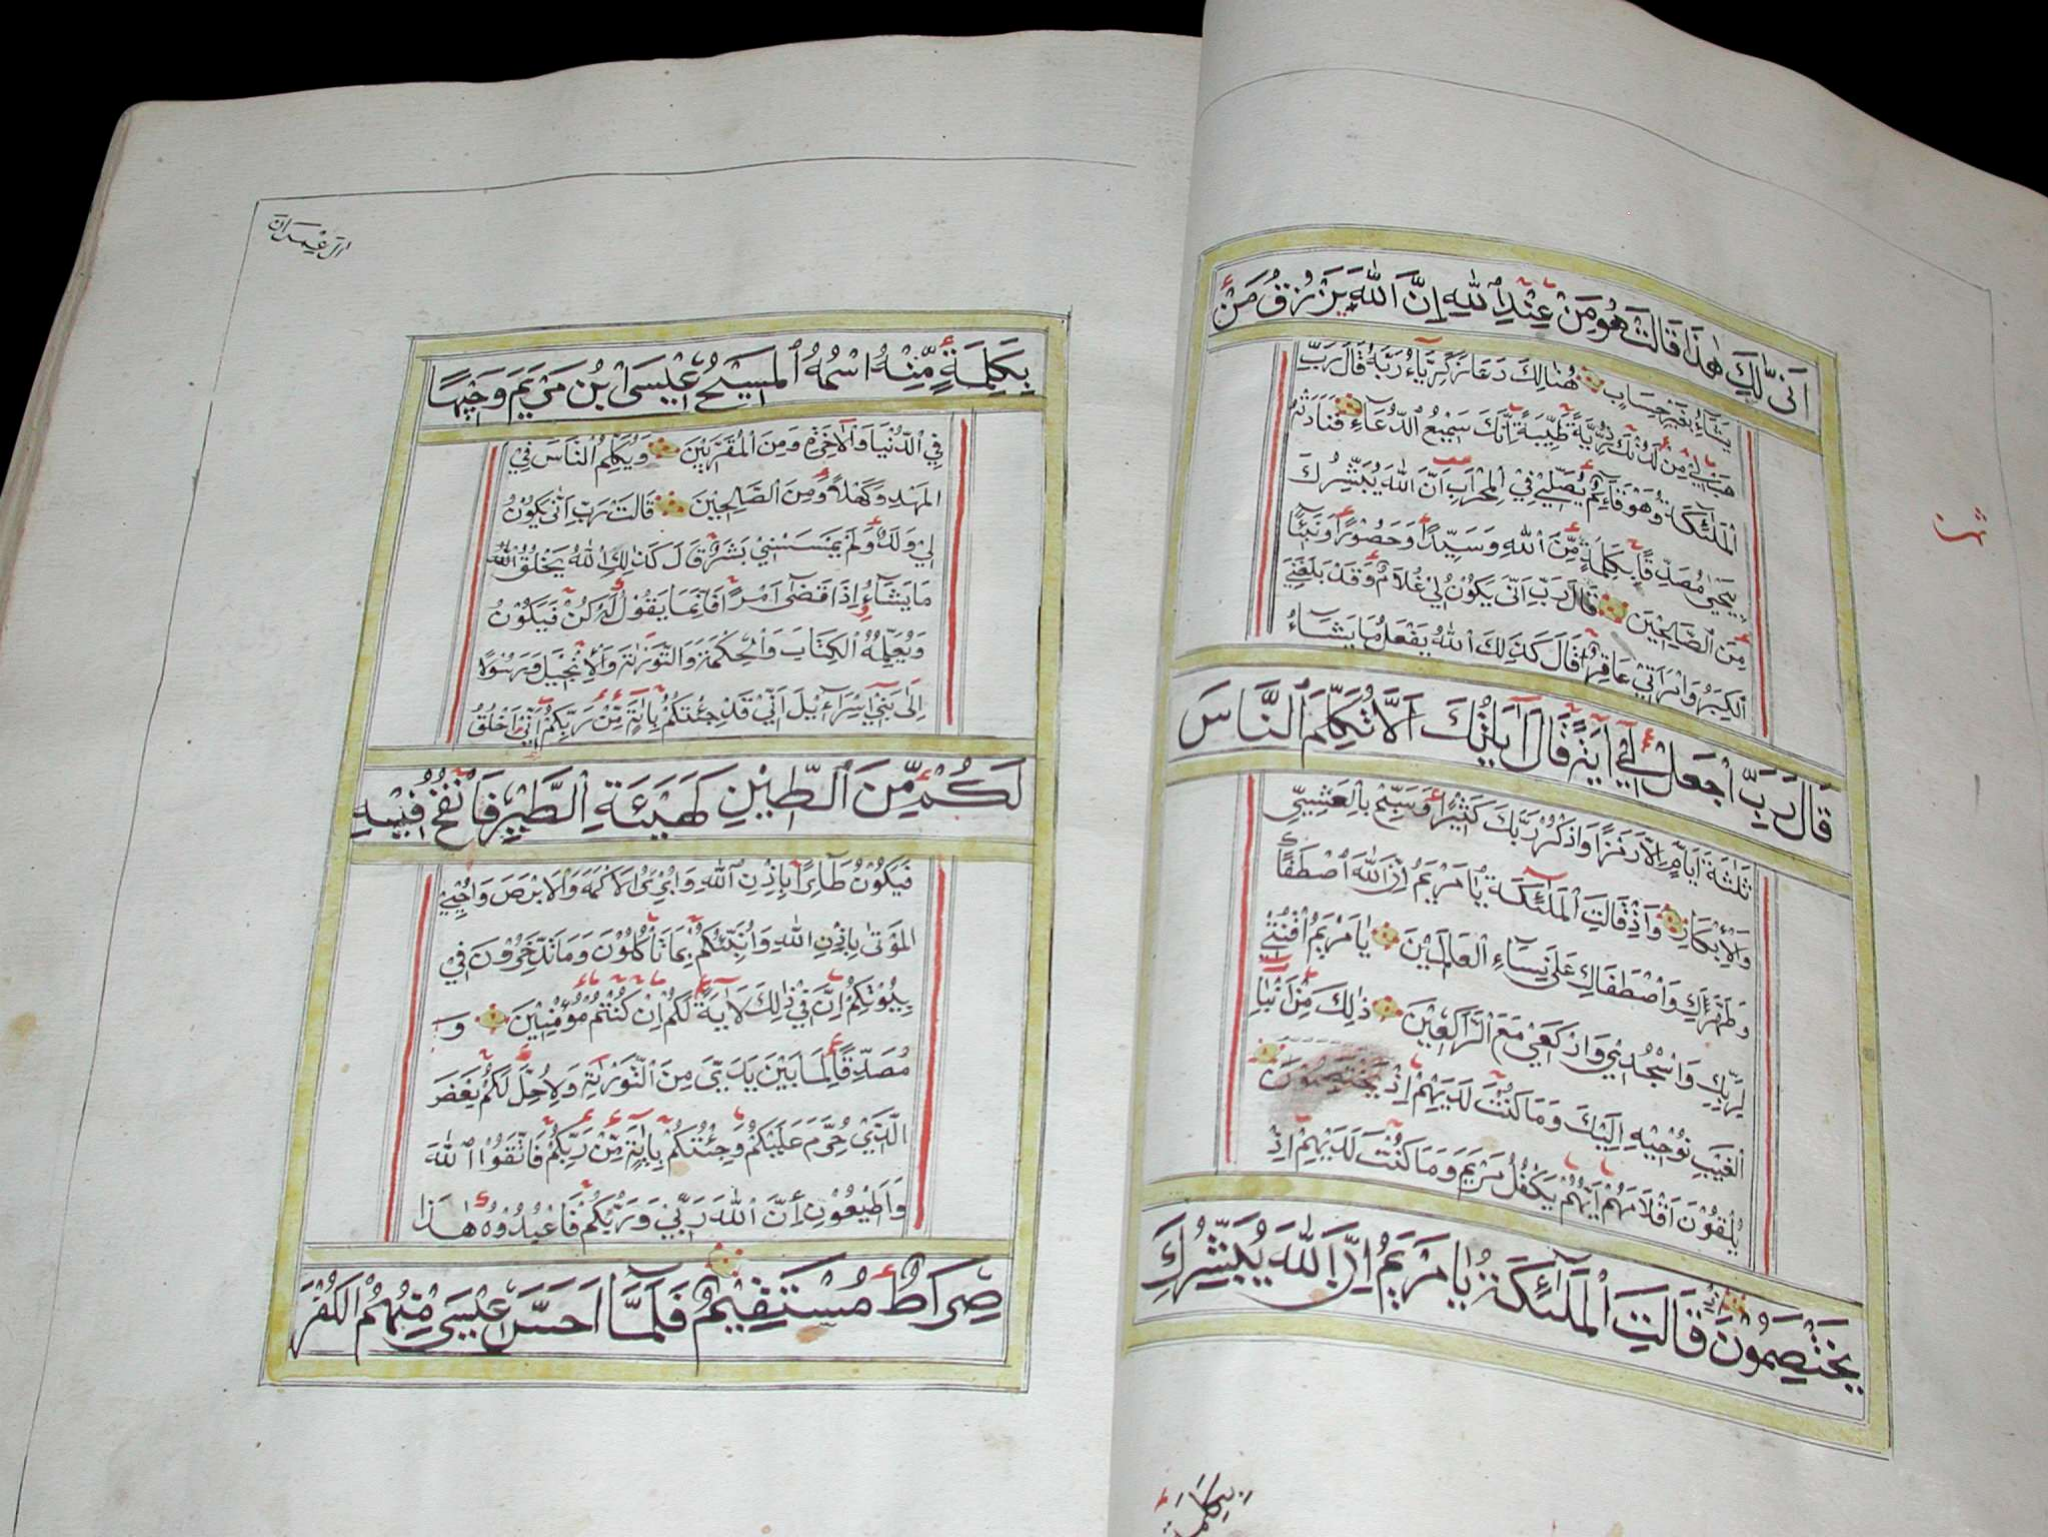 اَنّٰى لَكِ هٰذَا قَالَتْ هُوَ مِنْ عِنْدِ اللّٰهِ اِنَّ اللّٰهَ يَرْزُقُ مَنْ
يَشَاءُ بِغَيْرِ حِسَابٍ هُنَالِكَ دَعَا زَكَرِيَّاءُ رَبَّهُ قَالَ رَبِّ
هَبْ لِيْ مِنْ لَدُنْكَ ذُرِّيَّةً طَيِّبَةً اِنَّكَ سَمِيْعُ الدُّعَاءِ فَنَادَتْهُ
الْمَلٰئِكَةُ وَهُوَ قَائِمٌ يُصَلِّيْ فِي الْمِحْرَابِ اَنَّ اللّٰهَ يُبَشِّرُكَ
بِيَحْيٰى مُصَدِّقًا بِكَلِمَةٍ مِّنَ اللّٰهِ وَسَيِّدًا وَحَصُوْرًا وَنَبِيًّا
مِنَ الصَّالِحِيْنَ قَالَ رَبِّ اَنّٰى يَكُوْنُ لِيْ غُلَامٌ وَقَدْ بَلَغَنِيَ
الْكِبَرُ وَامْرَاَتِيْ عَاقِرٌ قَالَ كَذٰلِكَ اللّٰهُ يَفْعَلُ مَا يَشَاءُ
قَالَ رَبِّ اجْعَلْ لِيْ اٰيَةً قَالَ اٰيَتُكَ اَلَّا تُكَلِّمَ النَّاسَ
ثَلٰثَةَ اَيَّامٍ اِلَّا رَمْزًا وَاذْكُرْ رَبَّكَ كَثِيْرًا وَسَبِّحْ بِالْعَشِيِّ
وَالْاِبْكَارِ وَاِذْ قَالَتِ الْمَلٰئِكَةُ يٰامَرْيَمُ اِنَّ اللّٰهَ اصْطَفٰاكِ
وَطَهَّرَكِ وَاصْطَفَاكِ عَلٰى نِسَاءِ الْعَالَمِيْنَ يٰامَرْيَمُ اقْنُتِيْ
لِرَبِّكِ وَاسْجُدِيْ وَارْكَعِيْ مَعَ الرَّاكِعِيْنَ ذٰلِكَ مِنْ اَنْبَاءِ
الْغَيْبِ نُوْحِيْهِ اِلَيْكَ وَمَا كُنْتَ لَدَيْهِمْ اِذْ يَخْتَصِمُوْنَ
يُلْقُوْنَ اَقْلَامَهُمْ اَيُّهُمْ يَكْفُلُ مَرْيَمَ وَمَا كُنْتَ لَدَيْهِمْ اِذْ
يَخْتَصِمُوْنَ اِذْ قَالَتِ الْمَلٰئِكَةُ يٰامَرْيَمُ اِنَّ اللّٰهَ يُبَشِّرُكِ
بِكَلِمَةٍ
اٰلَ عِمْرَانَ
بِكَلِمَةٍ مِّنْهُ اسْمُهُ الْمَسِيْحُ عِيْسَى ابْنُ مَرْيَمَ وَجِيْهًا
فِي الدُّنْيَا وَالْاٰخِرَةِ وَمِنَ الْمُقَرَّبِيْنَ وَيُكَلِّمُ النَّاسَ فِي
الْمَهْدِ وَكَهْلًا وَمِنَ الصَّالِحِيْنَ قَالَتْ رَبِّ اَنّٰى يَكُوْنُ
لِيْ وَلَدٌ وَلَمْ يَمْسَسْنِيْ بَشَرٌ قَالَ كَذٰلِكِ اللّٰهُ يَخْلُقُ اللّٰهُ
مَا يَشَاءُ اِذَا قَضٰى اَمْرًا فَاِنَّمَا يَقُوْلُ لَهُ كُنْ فَيَكُوْنُ
وَيُعَلِّمُهُ الْكِتَابَ وَالْحِكْمَةَ وَالتَّوْرٰىةَ وَالْاِنْجِيْلَ وَرَسُوْلًا
اِلٰى بَنِيْ اِسْرَائِيْلَ اَنِّيْ قَدْ جِئْتُكُمْ بِاٰيَةٍ مِّنْ رَبِّكُمْ اَنِّيْ اَخْلُقُ
لَكُمْ مِّنَ الطِّيْنِ كَهَيْئَةِ الطَّيْرِ فَاَنْفُخُ فِيْهِ
فَيَكُوْنُ طَائِرًا بِاِذْنِ اللّٰهِ وَاُبْرِئُ الْاَكْمَهَ وَالْاَبْرَصَ وَاُحْيِي
الْمَوْتٰى بِاِذْنِ اللّٰهِ وَاُنَبِّئُكُمْ بِمَا تَاْكُلُوْنَ وَمَا تَدَّخِرُوْنَ فِيْ
بُيُوْتِكُمْ اِنَّ فِيْ ذٰلِكَ لَاٰيَةً لَكُمْ اِنْ كُنْتُمْ مُؤْمِنِيْنَ وَ
مُصَدِّقًا لِمَا بَيْنَ يَدَيَّ مِنَ التَّوْرٰىةِ وَلِاُحِلَّ لَكُمْ بَعْضَ
الَّذِيْ حُرِّمَ عَلَيْكُمْ وَجِئْتُكُمْ بِاٰيَةٍ مِّنْ رَبِّكُمْ فَاتَّقُوا اللّٰهَ
وَاَطِيْعُوْنِ اِنَّ اللّٰهَ رَبِّيْ وَرَبُّكُمْ فَاعْبُدُوْهُ هٰذَا
صِرَاطٌ مُسْتَقِيْمٌ فَلَمَّا اَحَسَّ عِيْسٰى مِنْهُمُ الْكُفْرَ